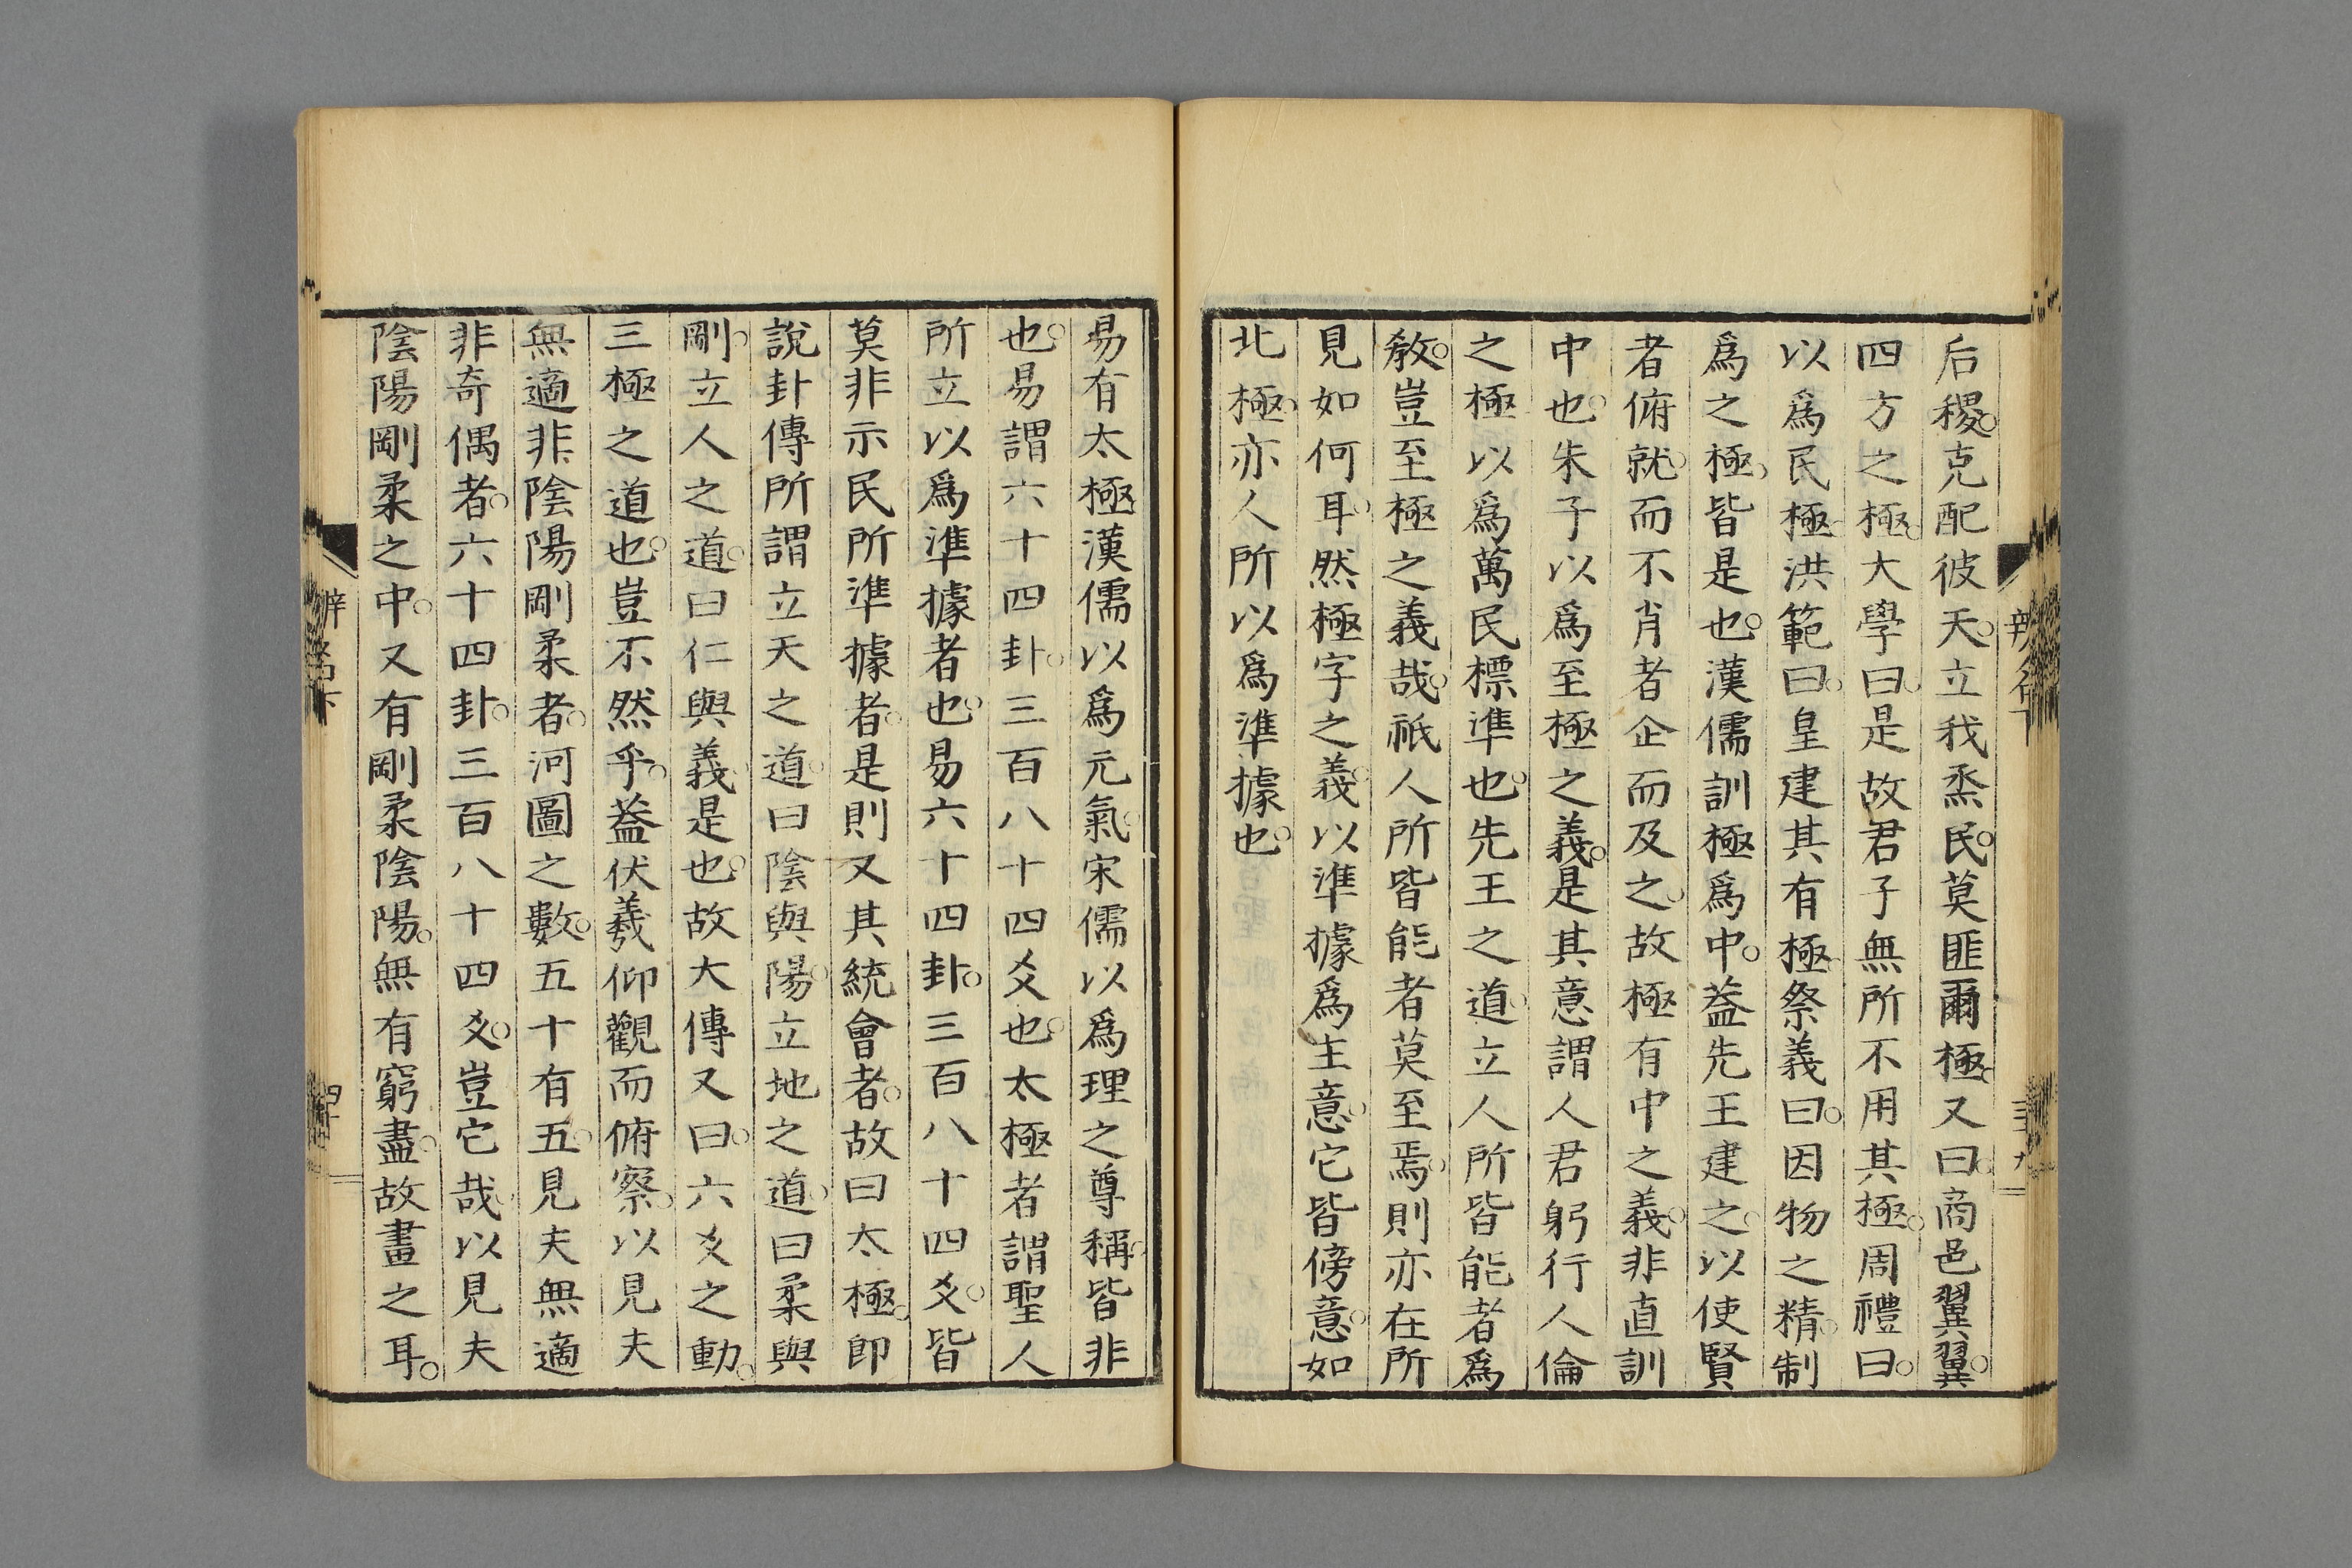 后稷。克配彼天。立我烝民。莫匪爾極。又曰。商邑翼翼。
四方之極。大學曰。是故君子無所不用其極。周禮曰。
以爲民極。洪範曰。皇建其有極。祭義曰。因物之精。制
爲之極。皆是也。漢儒訓極爲中。葢先王建之。以使賢
者俯就。而不肖者企而及之。故極有中之義。非直訓
中也。朱子以爲至極之義。是其意謂人君躬行人倫
之極以爲萬民標準也。先王之道。立人所皆能者爲
教。豈至極之義哉。祇人所皆能者莫至焉。則亦在所
見如何耳。然極字之義。以準據爲主意。它皆傍意。如
北極。亦人所以爲準據也。
易有太極漢儒以爲元氣。宋儒以爲理之尊稱。皆非
也。易謂六十四卦。三百八十四爻也。太極者謂聖人
所立以爲準據者也。易六十四卦。三百八十四爻。皆
莫非示民所準據者。是則又其統會者。故曰太極。即
說卦傳所謂立天之道。曰陰與陽。立地之道。曰柔與
剛。立人之道。曰仁與義。是也。故大傳又曰。六爻之動。
三極之道也。豈不然乎。葢伏羲仰觀而俯察。以見夫
無適非陰陽剛柔者。河圖之數。五十有五。見夫無適
非奇偶者。六十四卦。三百八十四爻。豈它哉。以見夫
陰陽剛柔之中。又有剛柔陰陽。無有窮盡。故畫之耳。